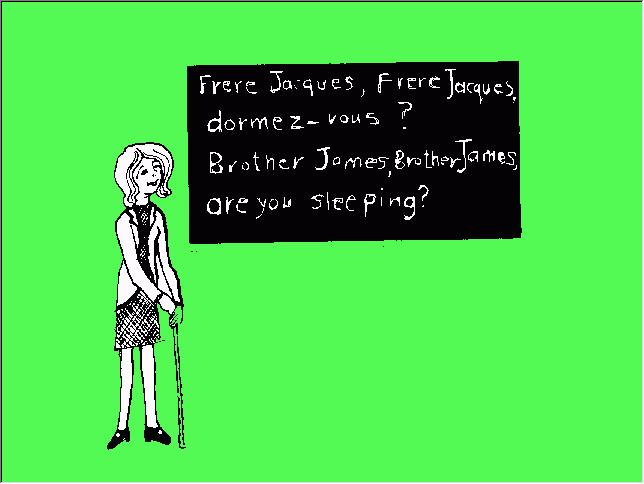 Frere Jacques, Frere Jacques,
dormez-vous ?
Brother James, Brother James,
are you sleeping?